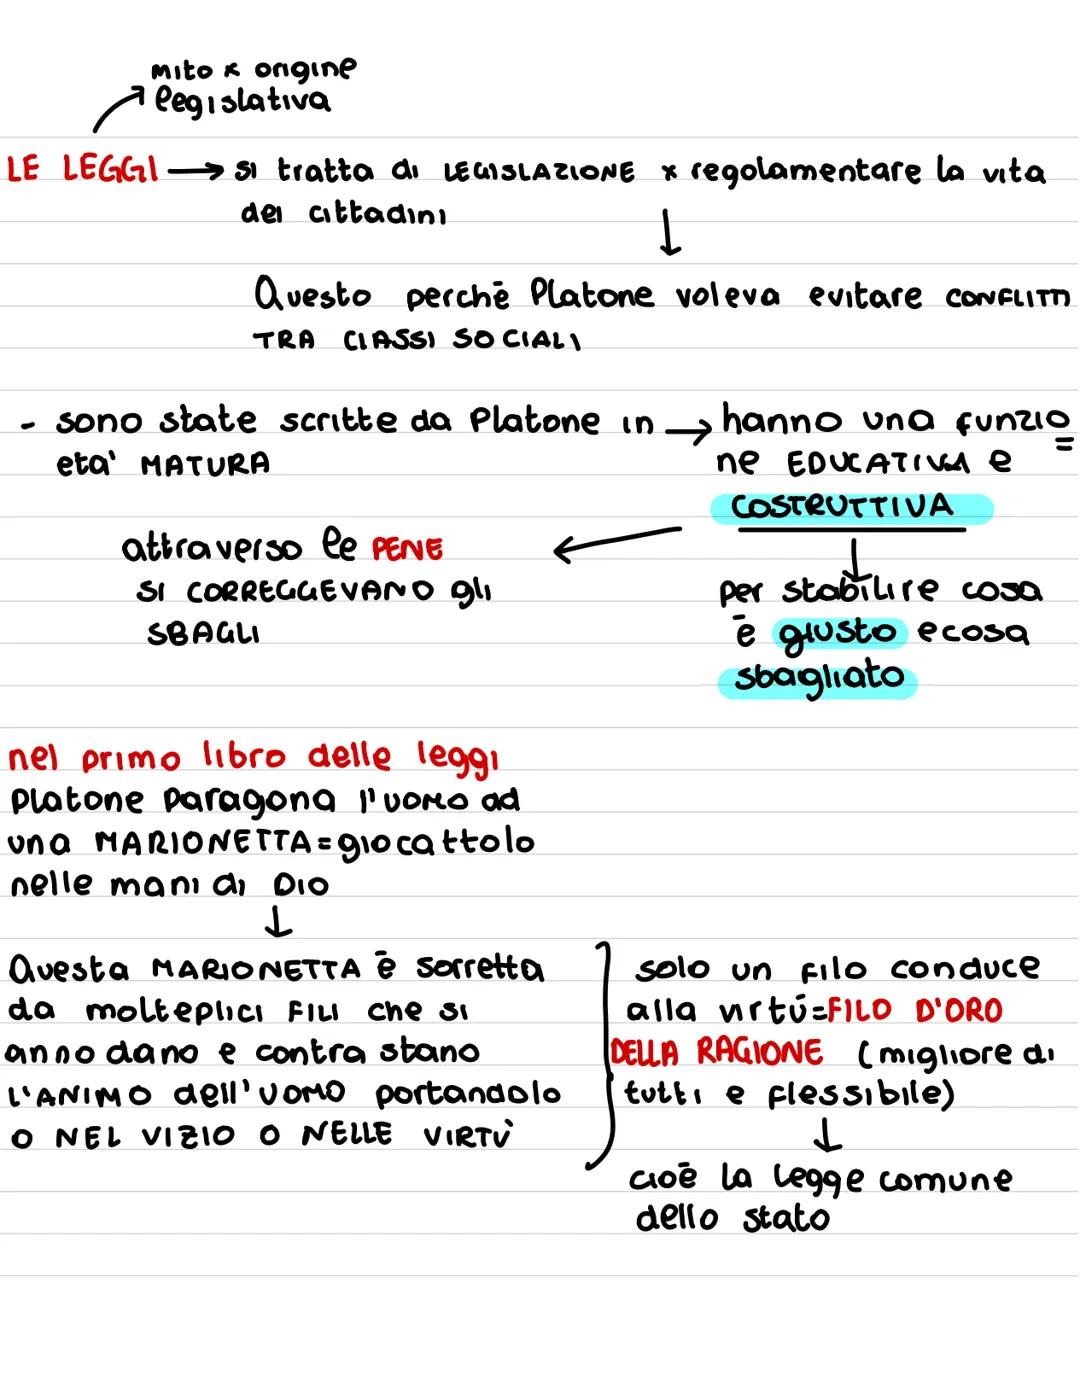 mito x origine
legislativa
LE LEGGI → si tratta di LEGISLAZIONE x regolamentare la vita
dei cittadini
↓
Questo perchē Platone voleva evitare CONFLITTI
TRA CLASSI SOCIALI
- sono state scritte da Platone in → hanno una funzio=
eta' MATURA
ne EDUCATIVA e
COSTRUTTIVA
attraverso le PENE
SI CORREGGEVANO gli
SBAGLI
per stabilire cosa
ē giusto e cosa
sbagliato
nel primo libro delle leggi
Platone Paragona l'UOMO ad
una MARIONETTA=giocattolo
nelle mani di DIO
↓
Questa MARIONETTA ē sorretta
da molteplici FILI che si
annodano e contrastano
L'ANIMO dell'UOMO portandolo
O NEL VIZIO O NELLE VIRTÙ
solo un filo conduce
alla virtú=FILO D'ORO
DELLA RAGIONE (migliore di
tutti e flessibile)
↓
cioē la legge comune
dello stato